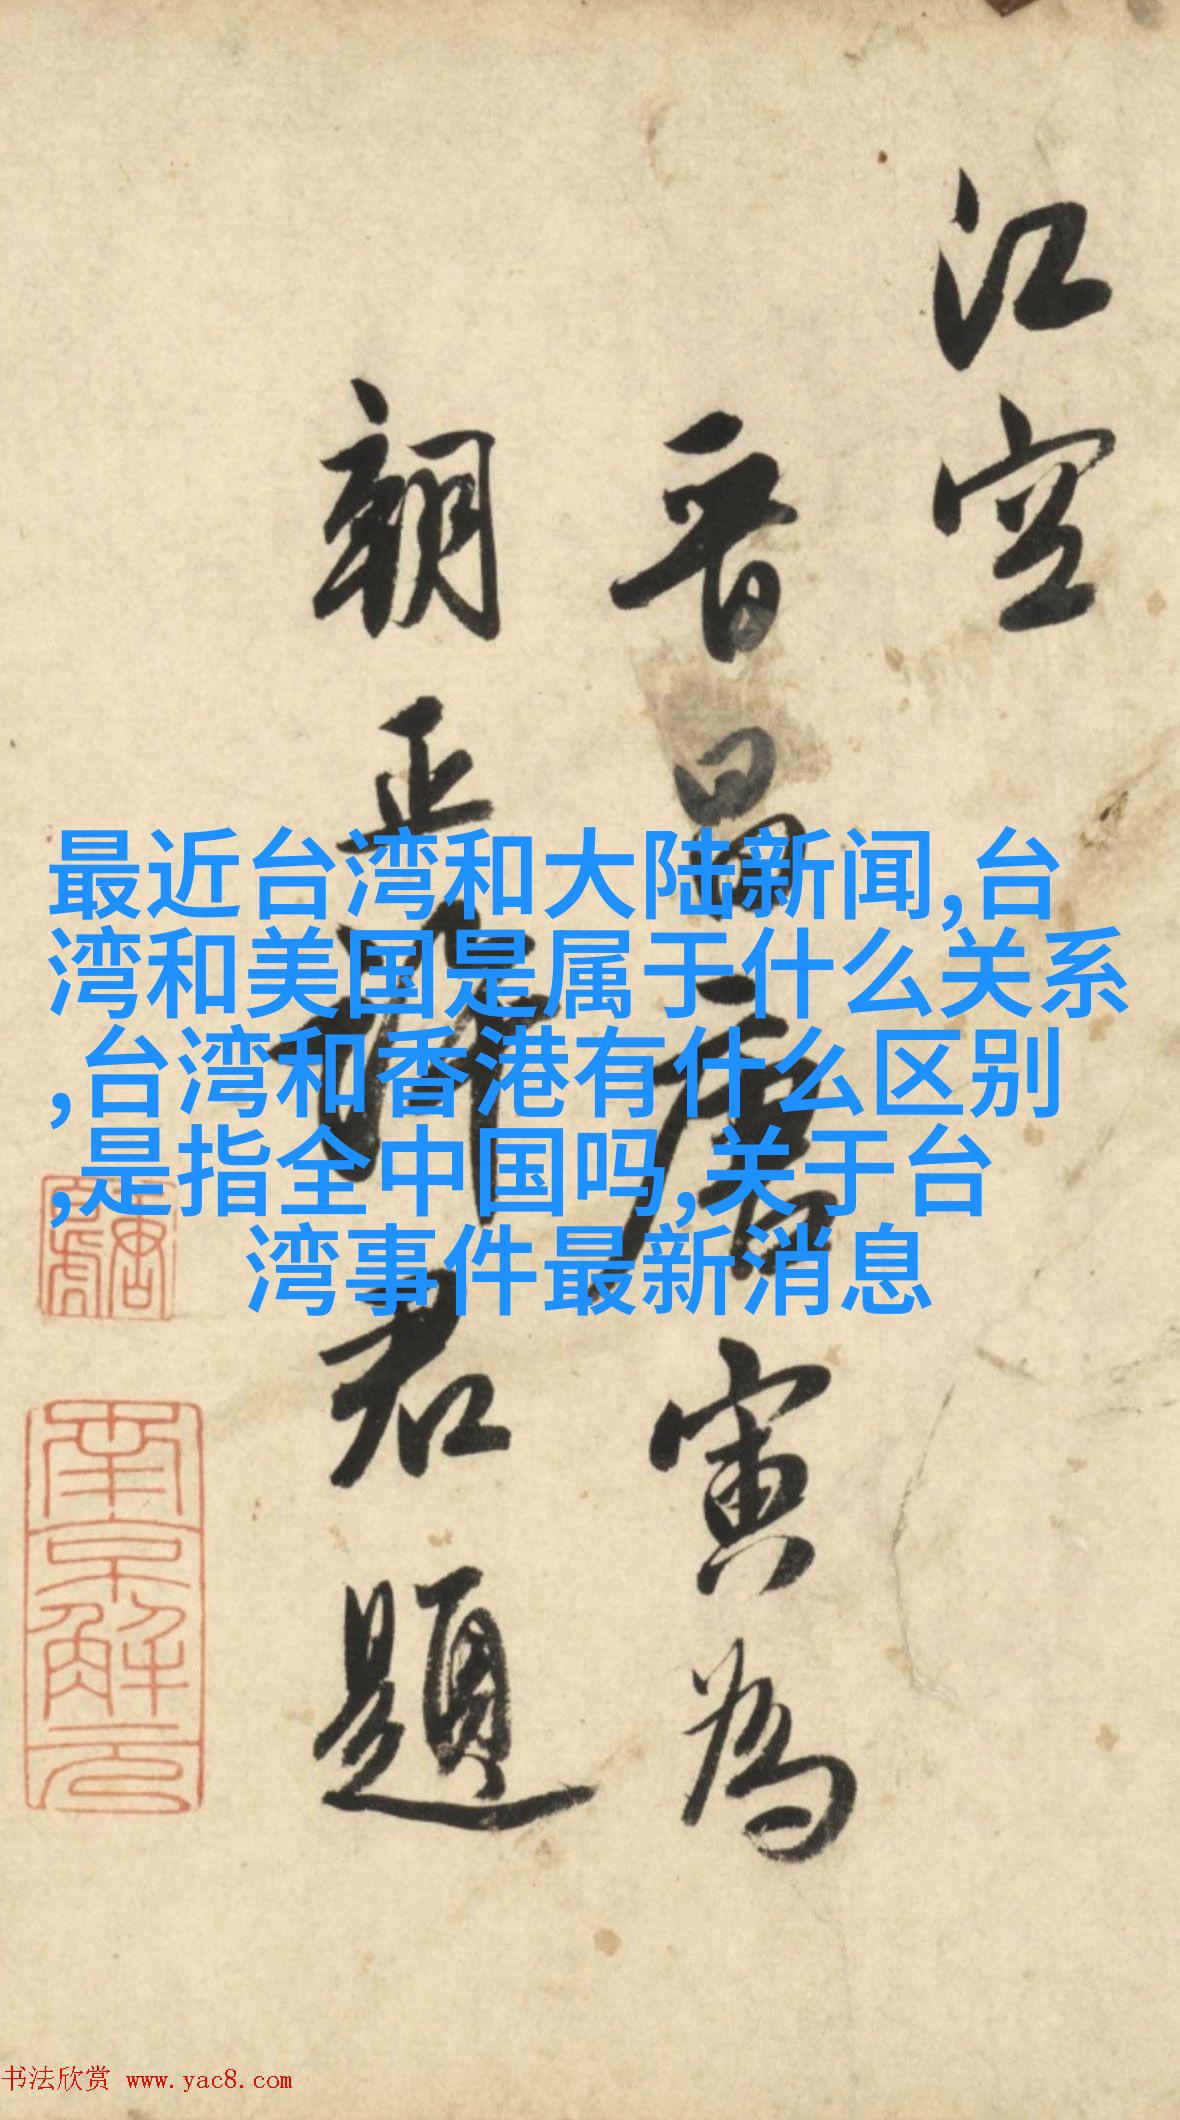 江空
晋昌唐寅為
朝正
君題
最近台湾和大陆新闻,台
湾和美国是属于什么关系
,台湾和香港有什么区别
,是指全中国吗,关于台
湾事件最新消息
南京解元
书法欣赏 www.yac8.com